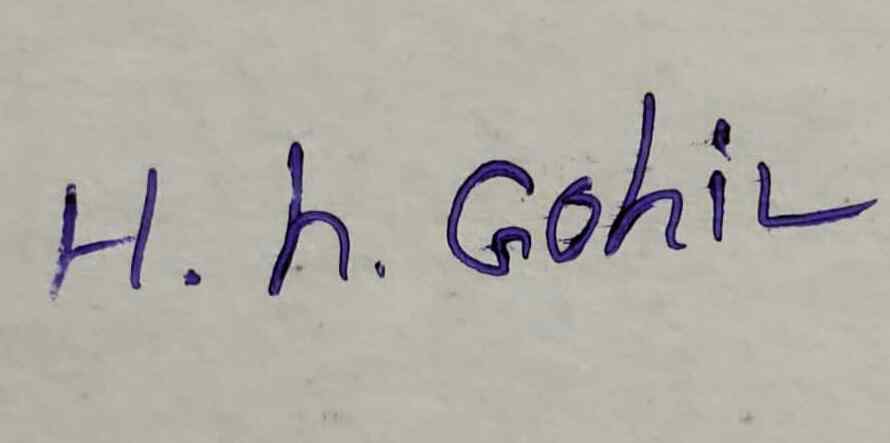 H. h. Gohil